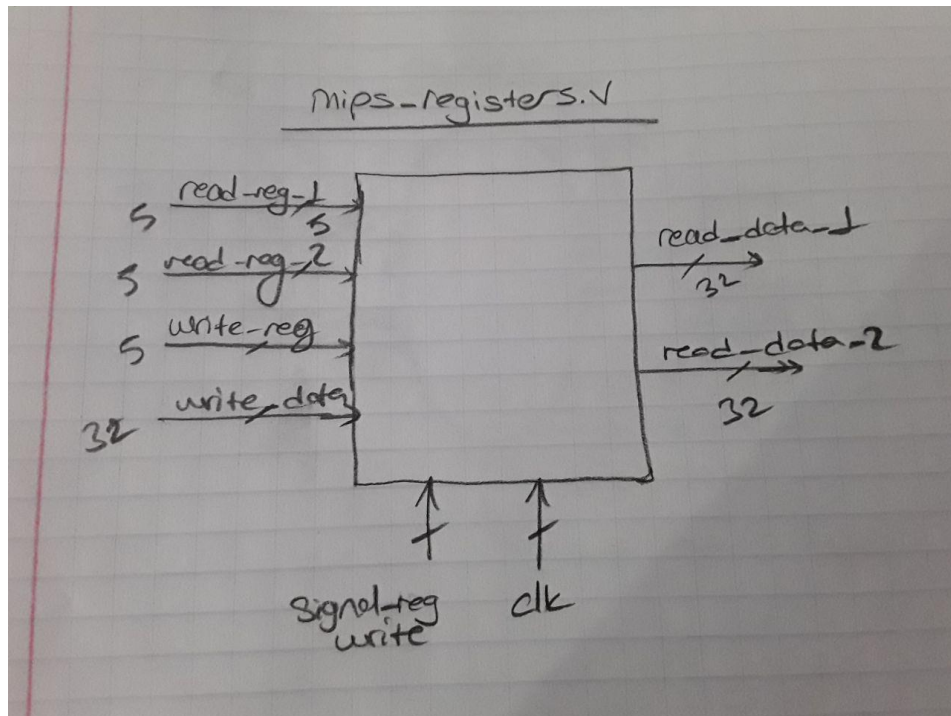 mips_registers.v
read_reg_1
5
5
read_reg_2
5
write_reg
5
write_data
32
read_data_1
32
read_data_2
32
signal_reg
write
clk